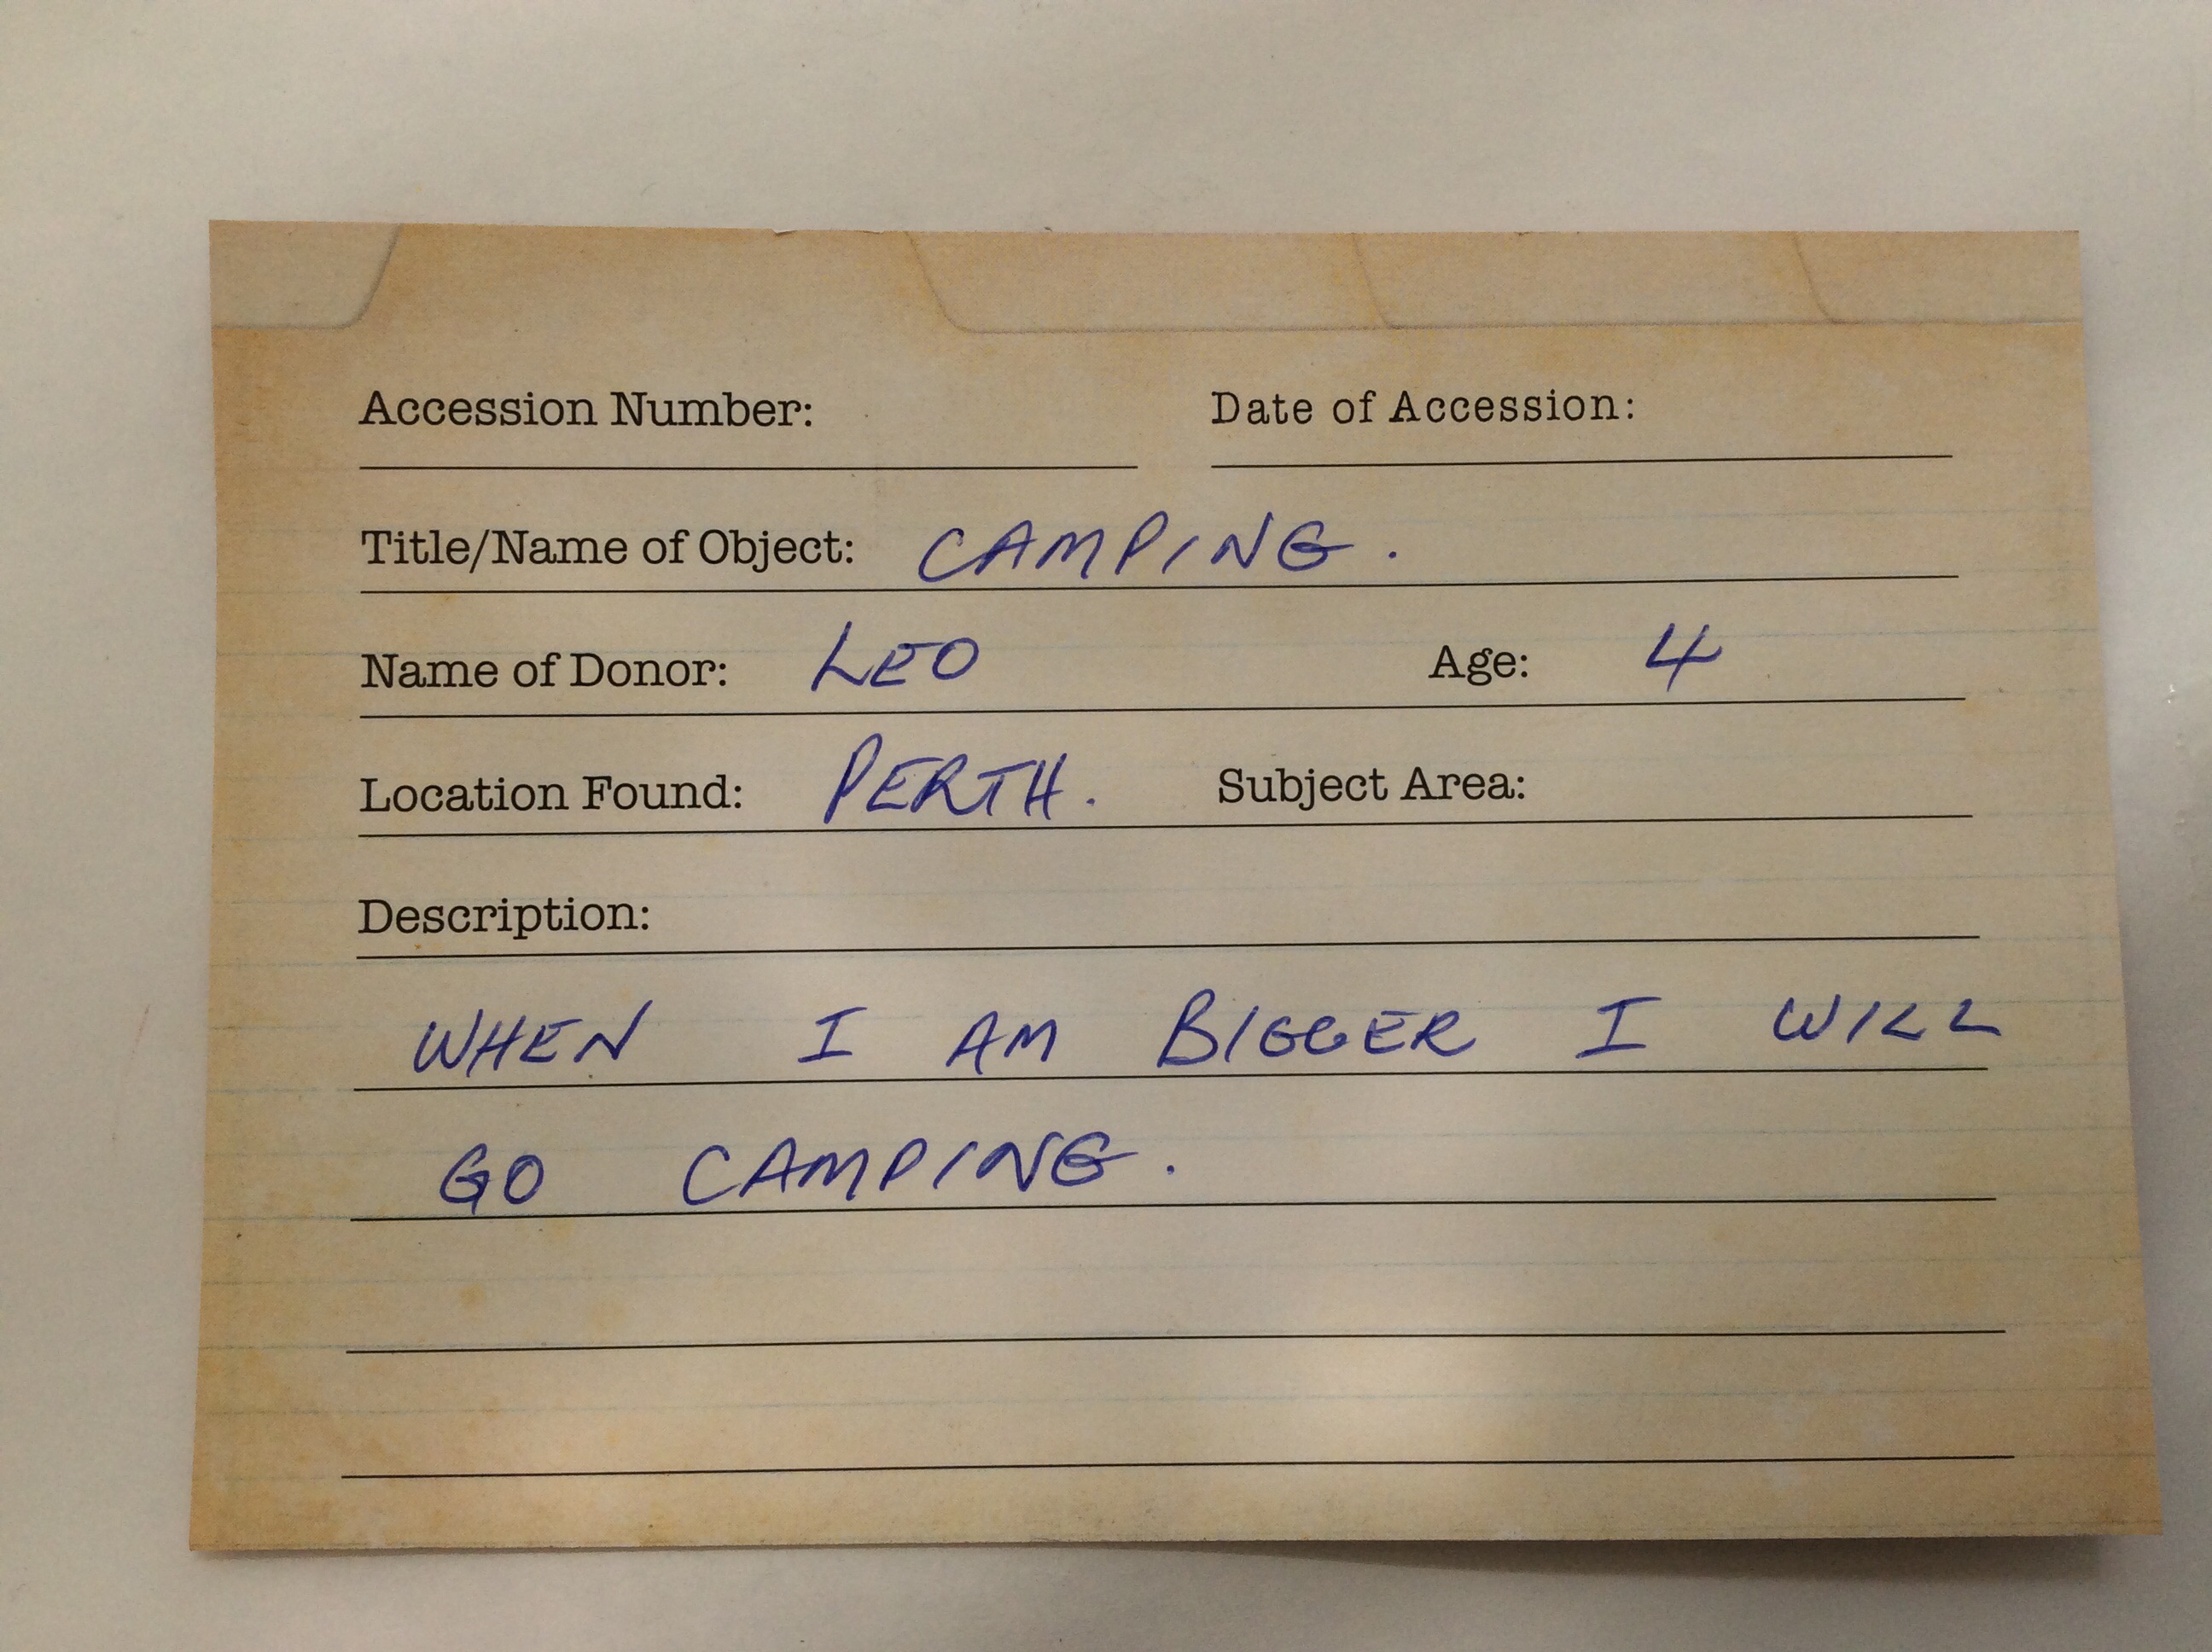 Accession Number: Date of Accession:
Title/Name of Object: CAMPING.
Name of Donor: LEO Age: 4
Location Found: PERTH. Subject Area:
Description:
WHEN I AM BIGGER I WILL
GO CAMPING.